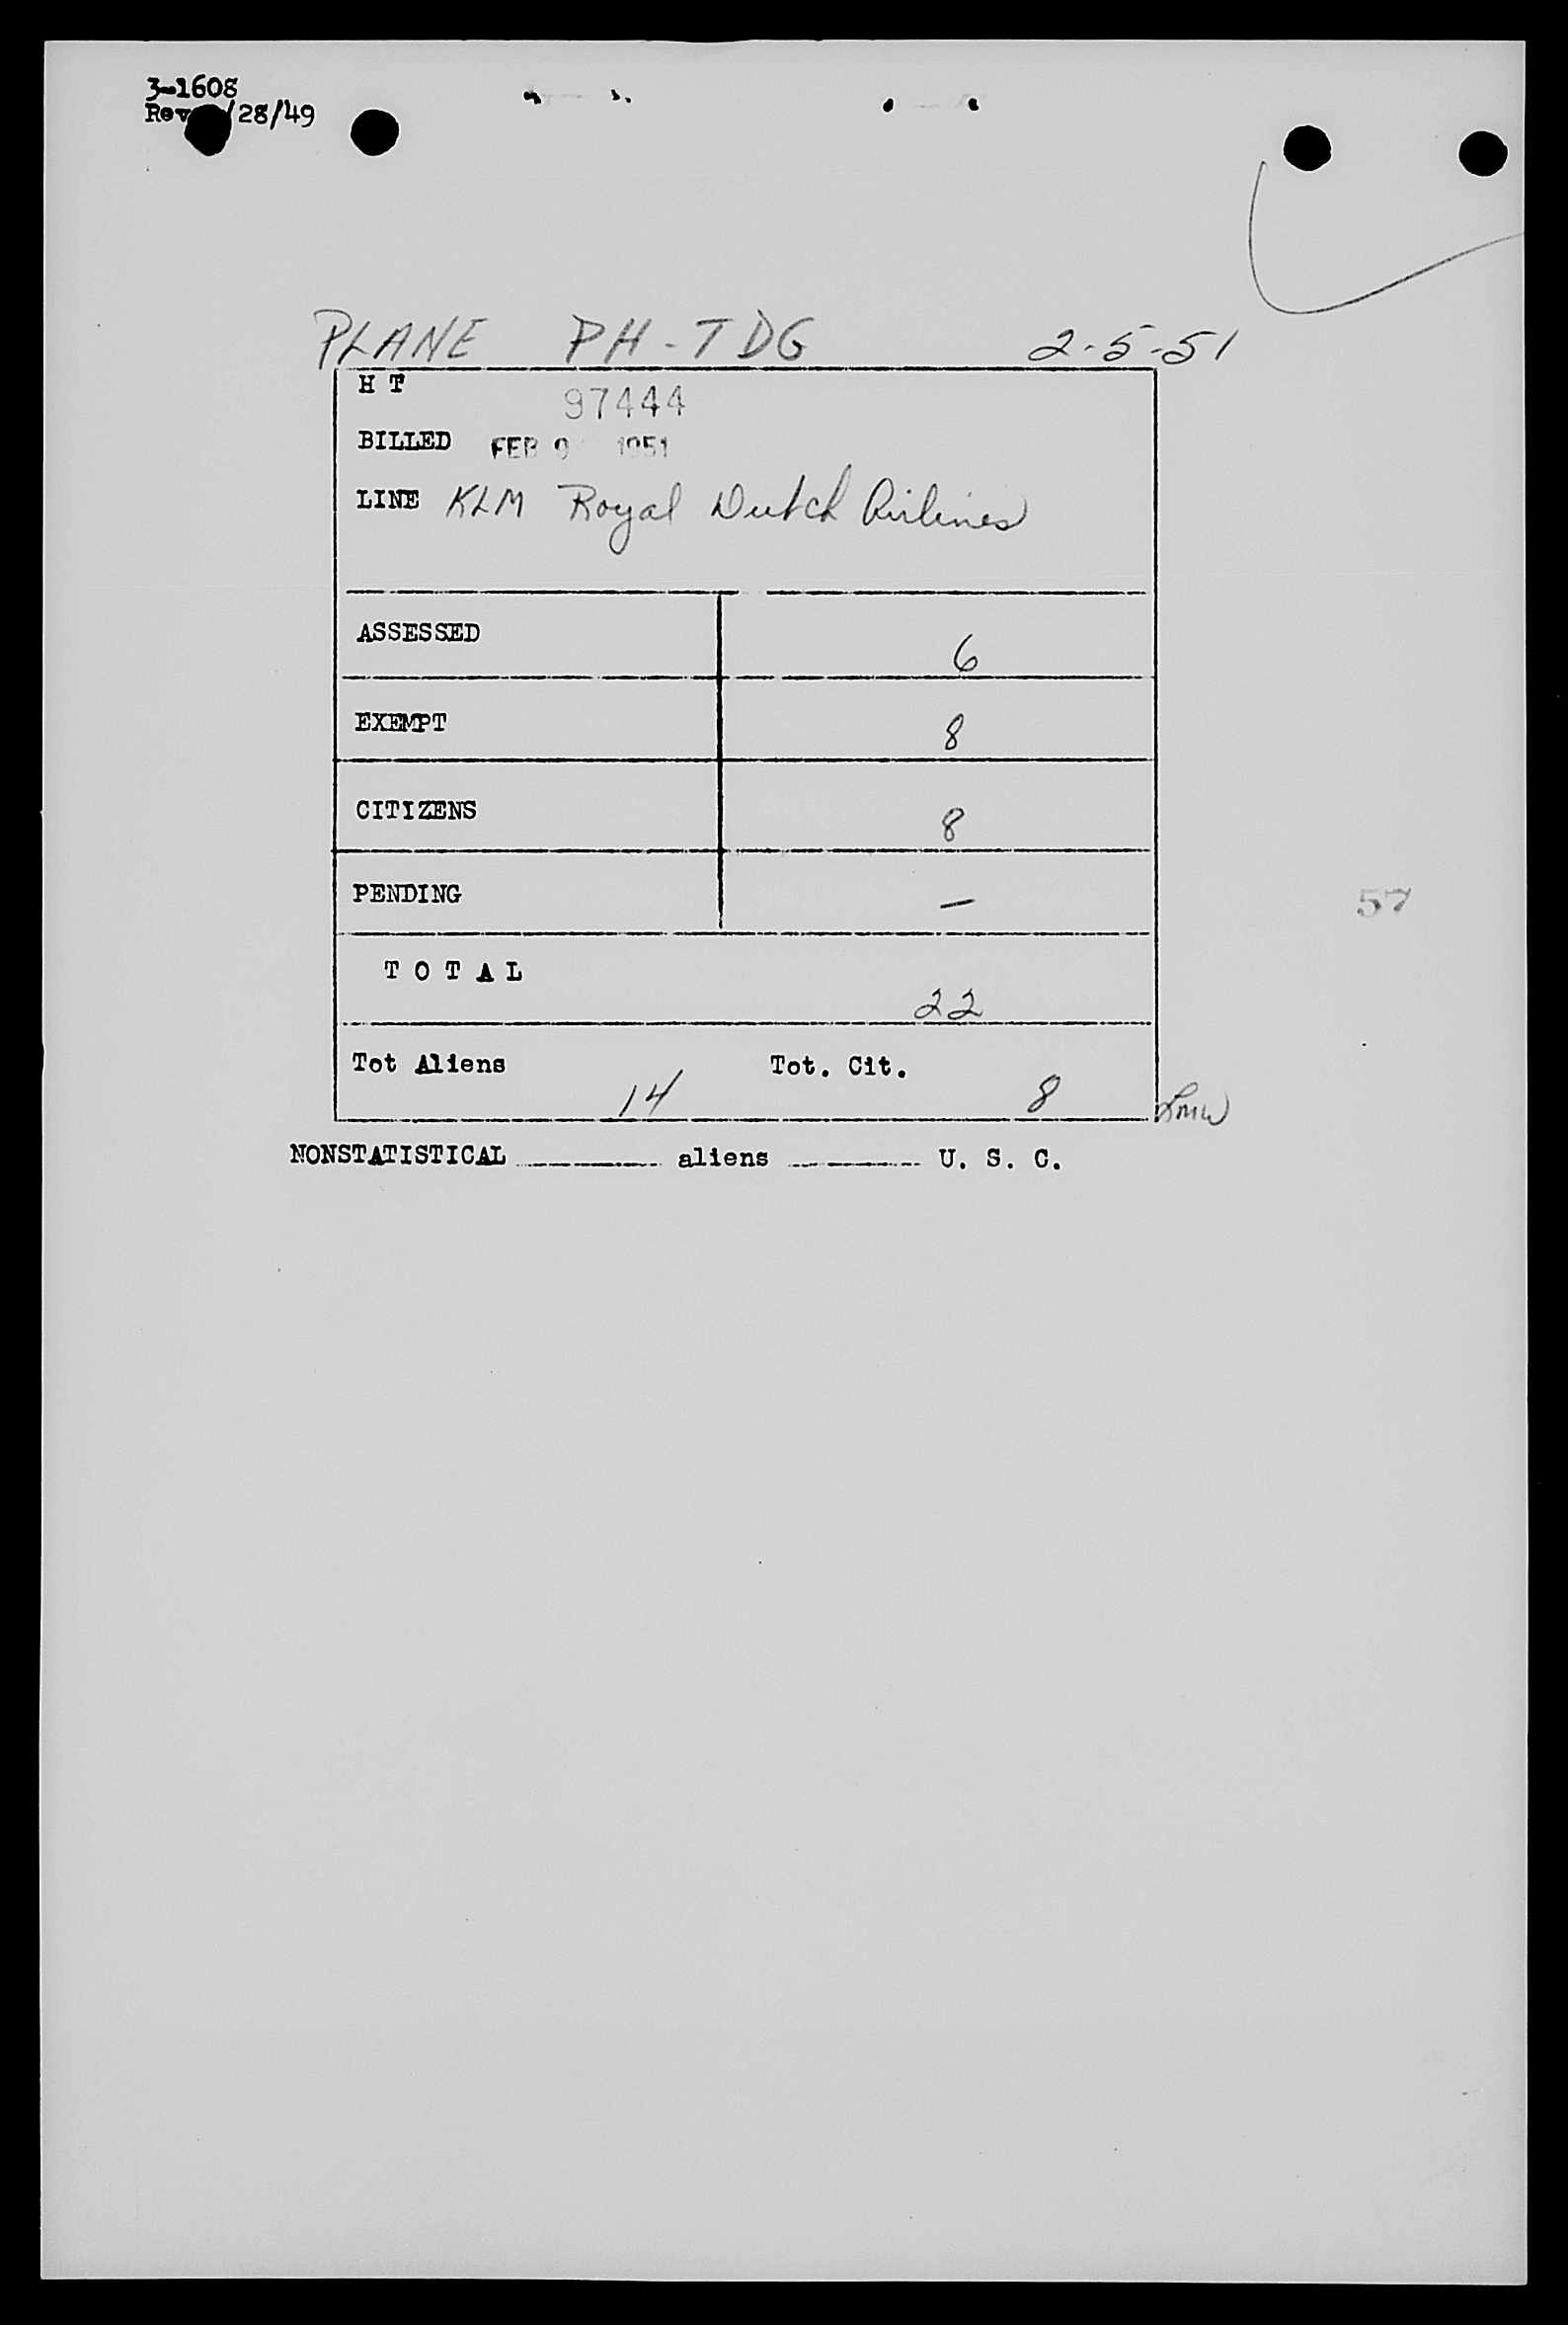 3-1608
Rev /28/49
PLANE PH-TDG 2-5-51
H T 97444
BILLED FEB 9 1951
LINE KLM Royal Dutch Airlines
ASSESSED 6
EXEMPT 8
CITIZENS 8
PENDING —
57
T O T A L 22
Tot Aliens 14 Tot. Cit. 8
LMW
NONSTATISTICAL ________ aliens ________ U. S. C.